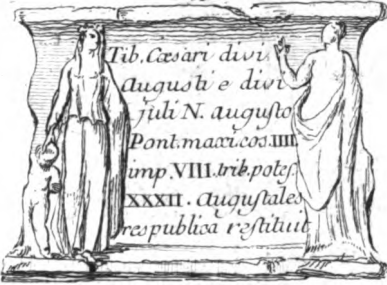 Tib. Cæsari divi
Augusti e divi
juli N. augusto
Pont. maxi. cos. IIII
imp. VIII. trib. potes.
XXXII. Augustales
respublica restituit